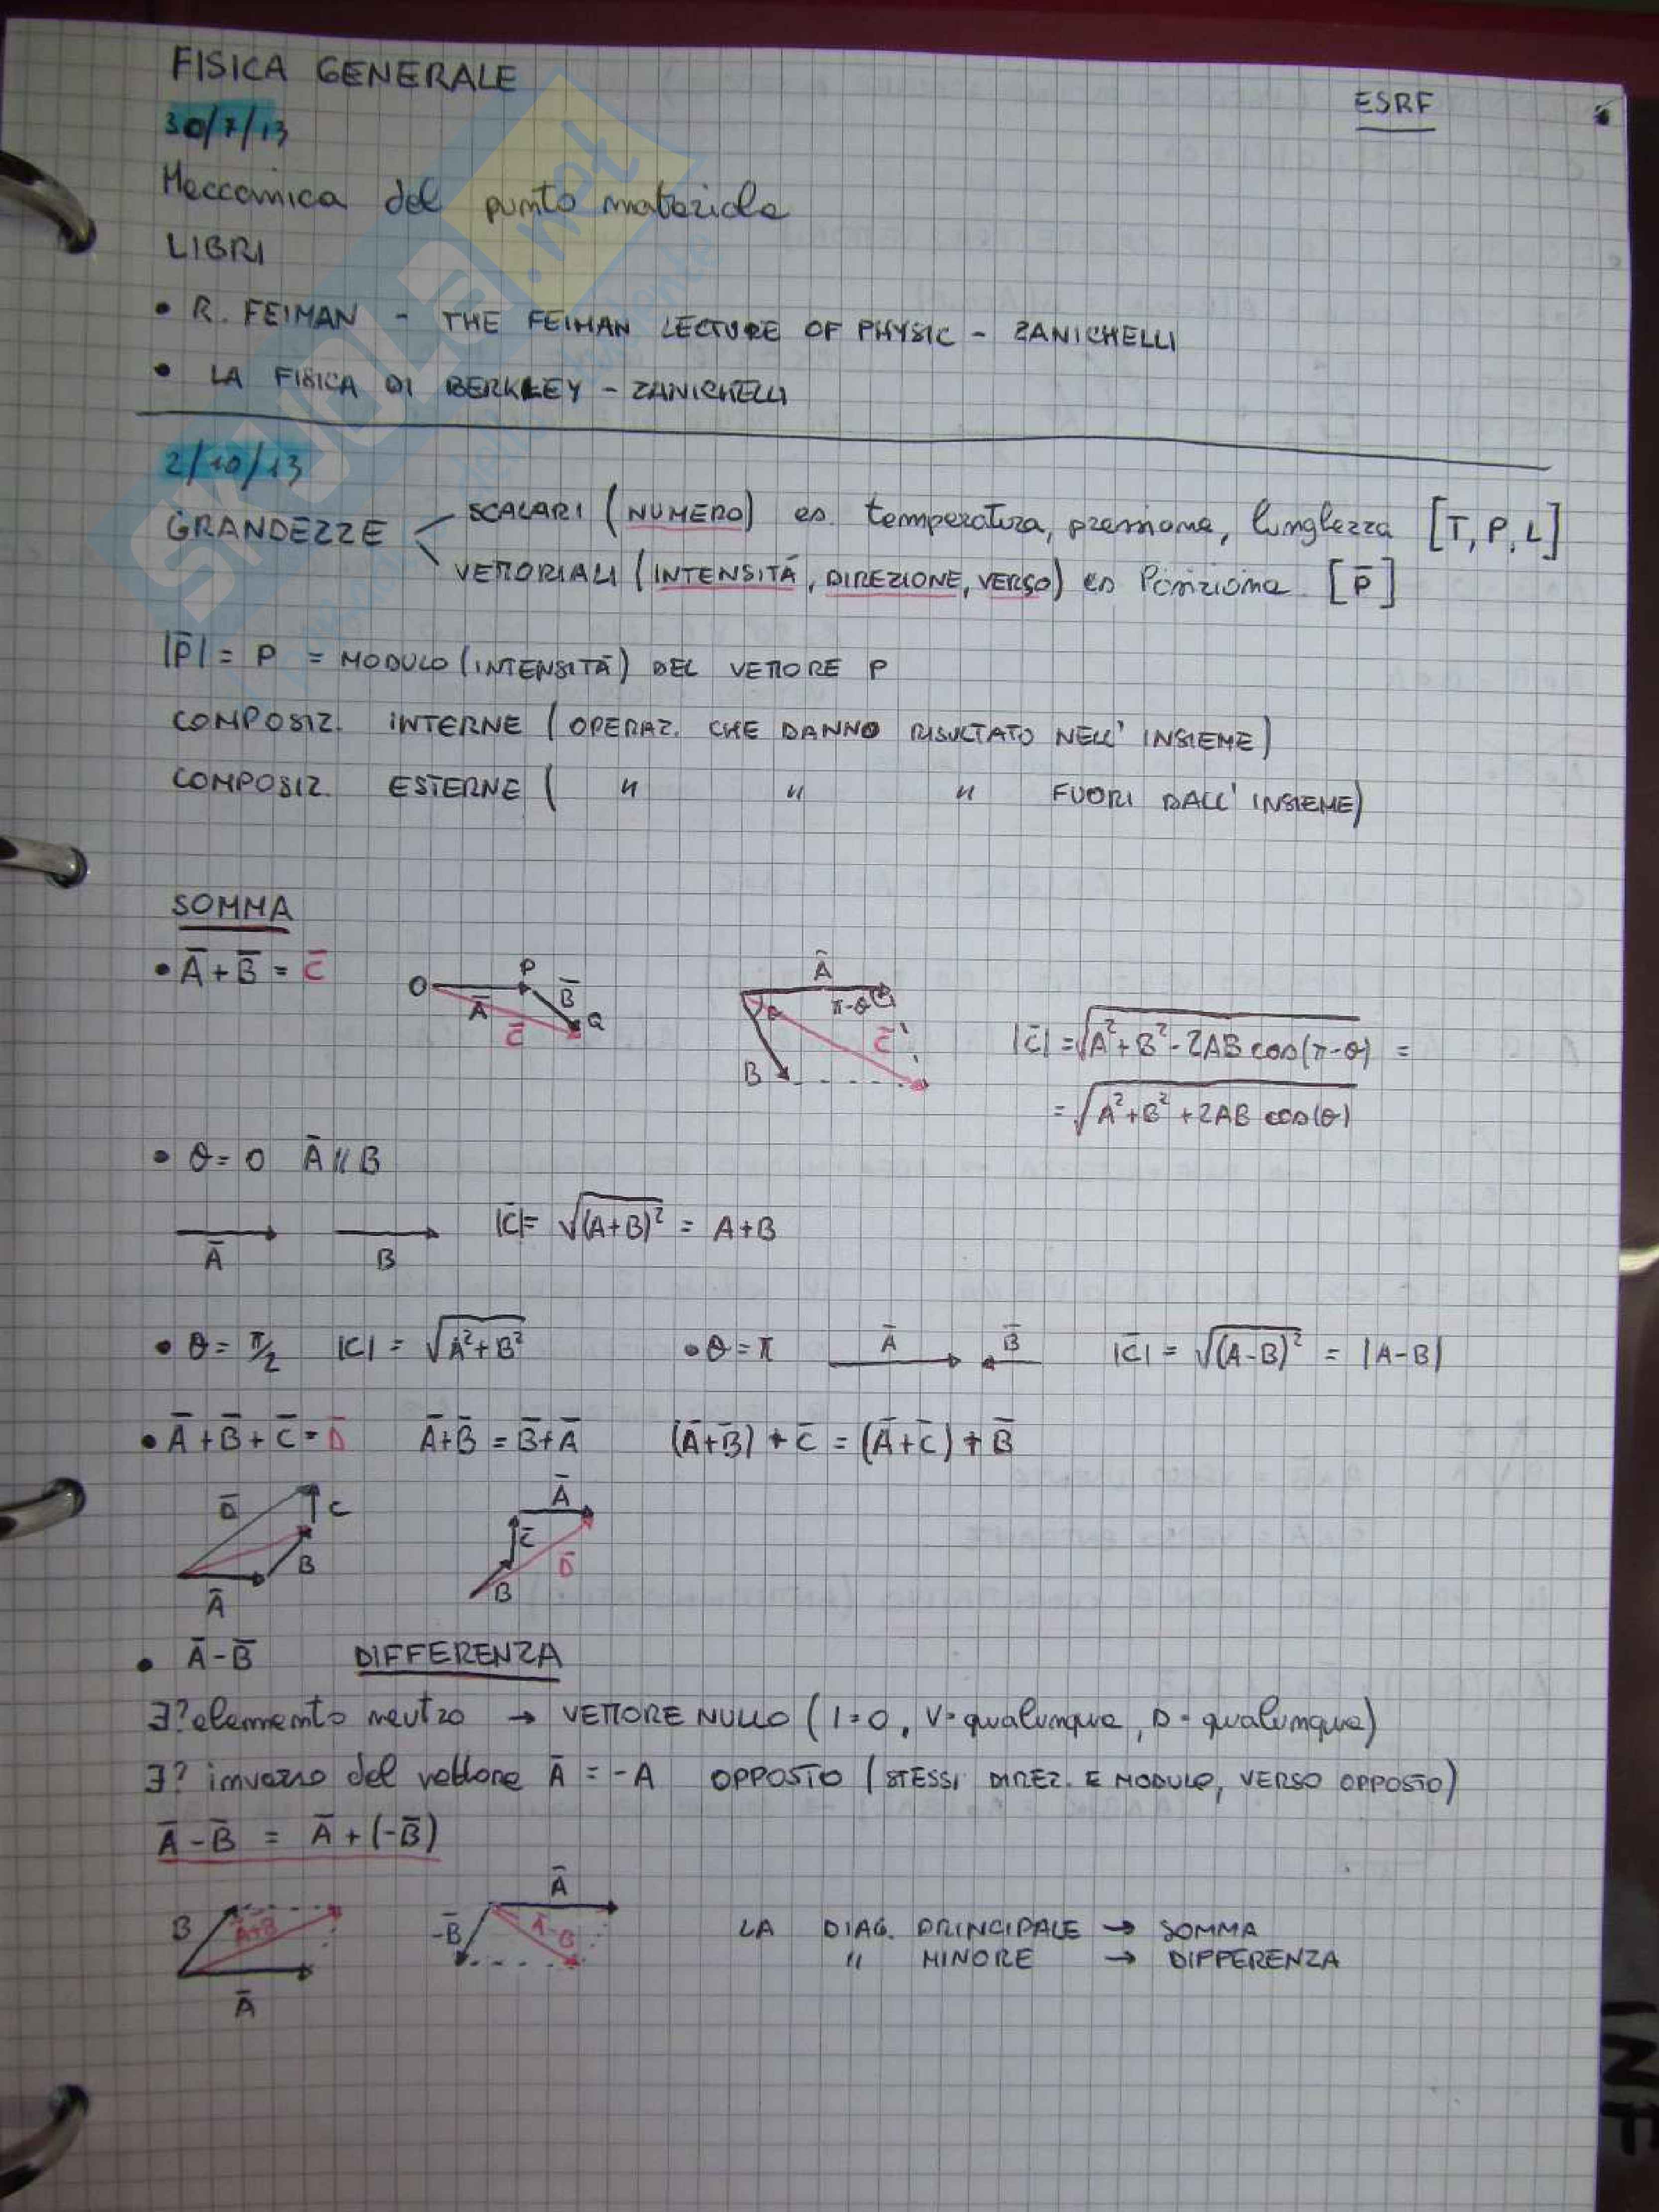 FISICA GENERALE
ESRF
30/7/13
Meccanica del punto materiale
LIBRI
• R. FEIMAN - THE FEIMAN LECTURE OF PHYSIC - ZANICHELLI
• LA FISICA DI BERKLEY - ZANICHELLI
2/10/13
GRANDEZZE
SCALARI (NUMERO) es. temperatura, pressione, lunghezza [T, P, L]
VETTORIALI (INTENSITÀ, DIREZIONE, VERSO) es Posizione [P̄]
|P̄| = P = MODULO (INTENSITÀ) DEL VETTORE P
COMPOSIZ. INTERNE (OPERAZ. CHE DANNO RISULTATO NELL' INSIEME)
COMPOSIZ. ESTERNE ( " " " FUORI DALL' INSIEME)
SOMMA
• Ā + B̄ = C̄
O P Ā B̄ Q C̄
Ā π-θ θ C̄ B
|C̄| = √(A²+B²-2AB cos(π-θ)) =
= √(A²+B²+2AB cos(θ))
• θ = 0 Ā // B
Ā B |C̄| = √((A+B)²) = A+B
• θ = π/2 |C| = √(A²+B²) • θ = π Ā B̄ |C̄| = √((A-B)²) = |A-B|
• Ā + B̄ + C̄ = D̄ Ā+B̄ = B̄+Ā (Ā+B̄) + C̄ = (Ā+C̄) + B̄
D̄ C B Ā
Ā C̄ D̄ B
• Ā - B̄ DIFFERENZA
∃? elemento neutro → VETTORE NULLO (I=0, V=qualunque, D=qualunque)
∃? inverso del vettore Ā = -A OPPOSTO (STESSI DIREZ. E MODULO, VERSO OPPOSTO)
Ā - B̄ = Ā + (-B̄)
B A+B Ā
Ā -B̄ A-B
LA DIAG. PRINCIPALE → SOMMA
" MINORE → DIFFERENZA
SKUOLa.net